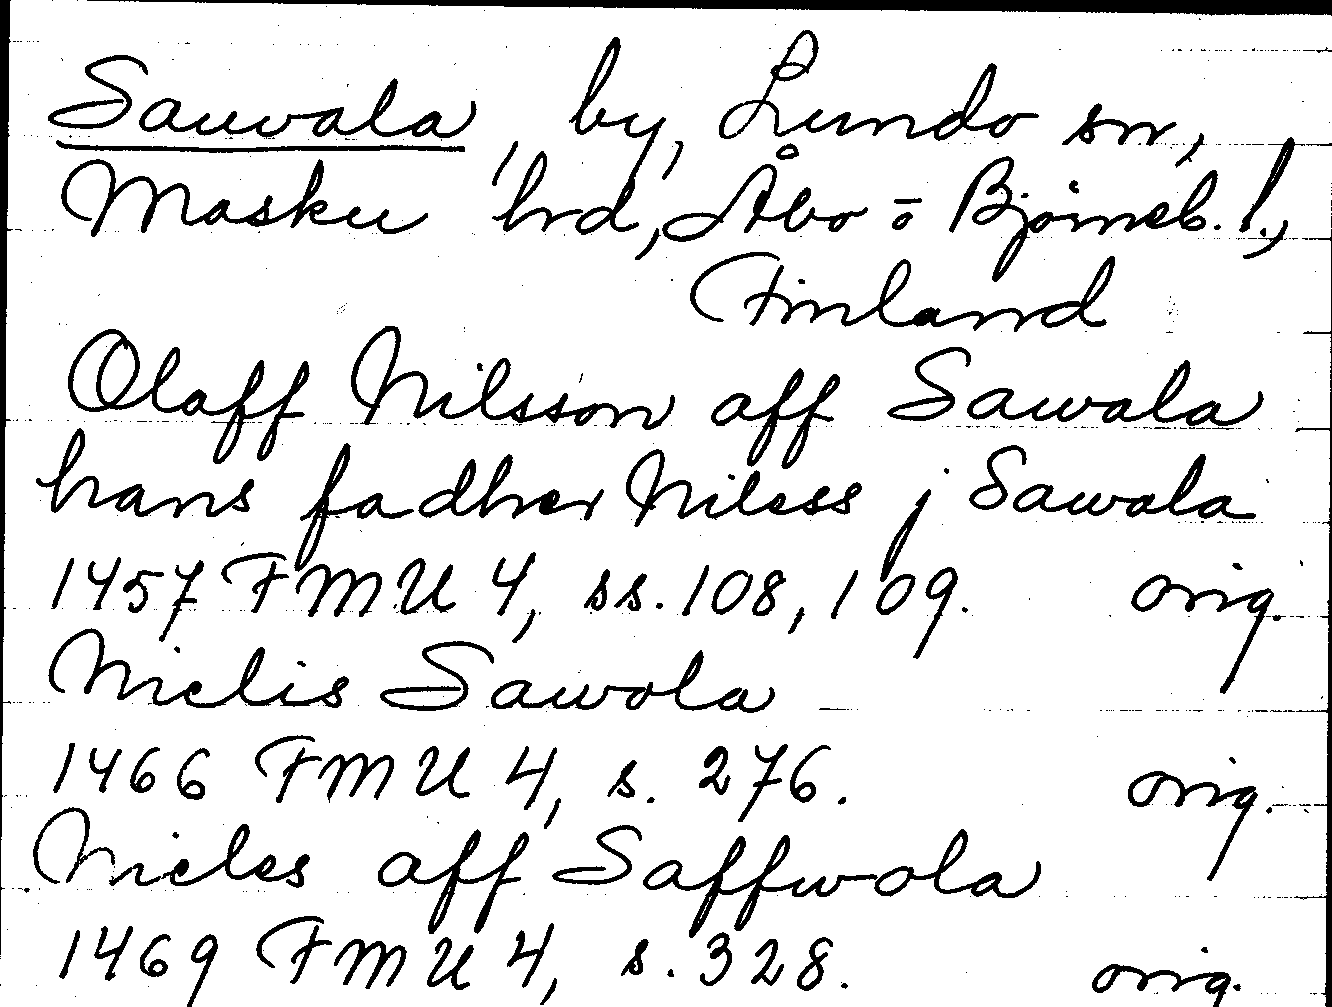 Sauvala, by, Lundo sn,
Masku hrd, Åbo o Björneb. l.,
Finland
Olaff Nilsson aff Sawala
hans fadher Niless j Sawala
1457 FMU 4, ss. 108, 109. orig.
Nielis Sawola
1466 FMU 4, s. 276. orig.
Nieles aff Saffwola
1469 FMU 4, s. 328. orig.